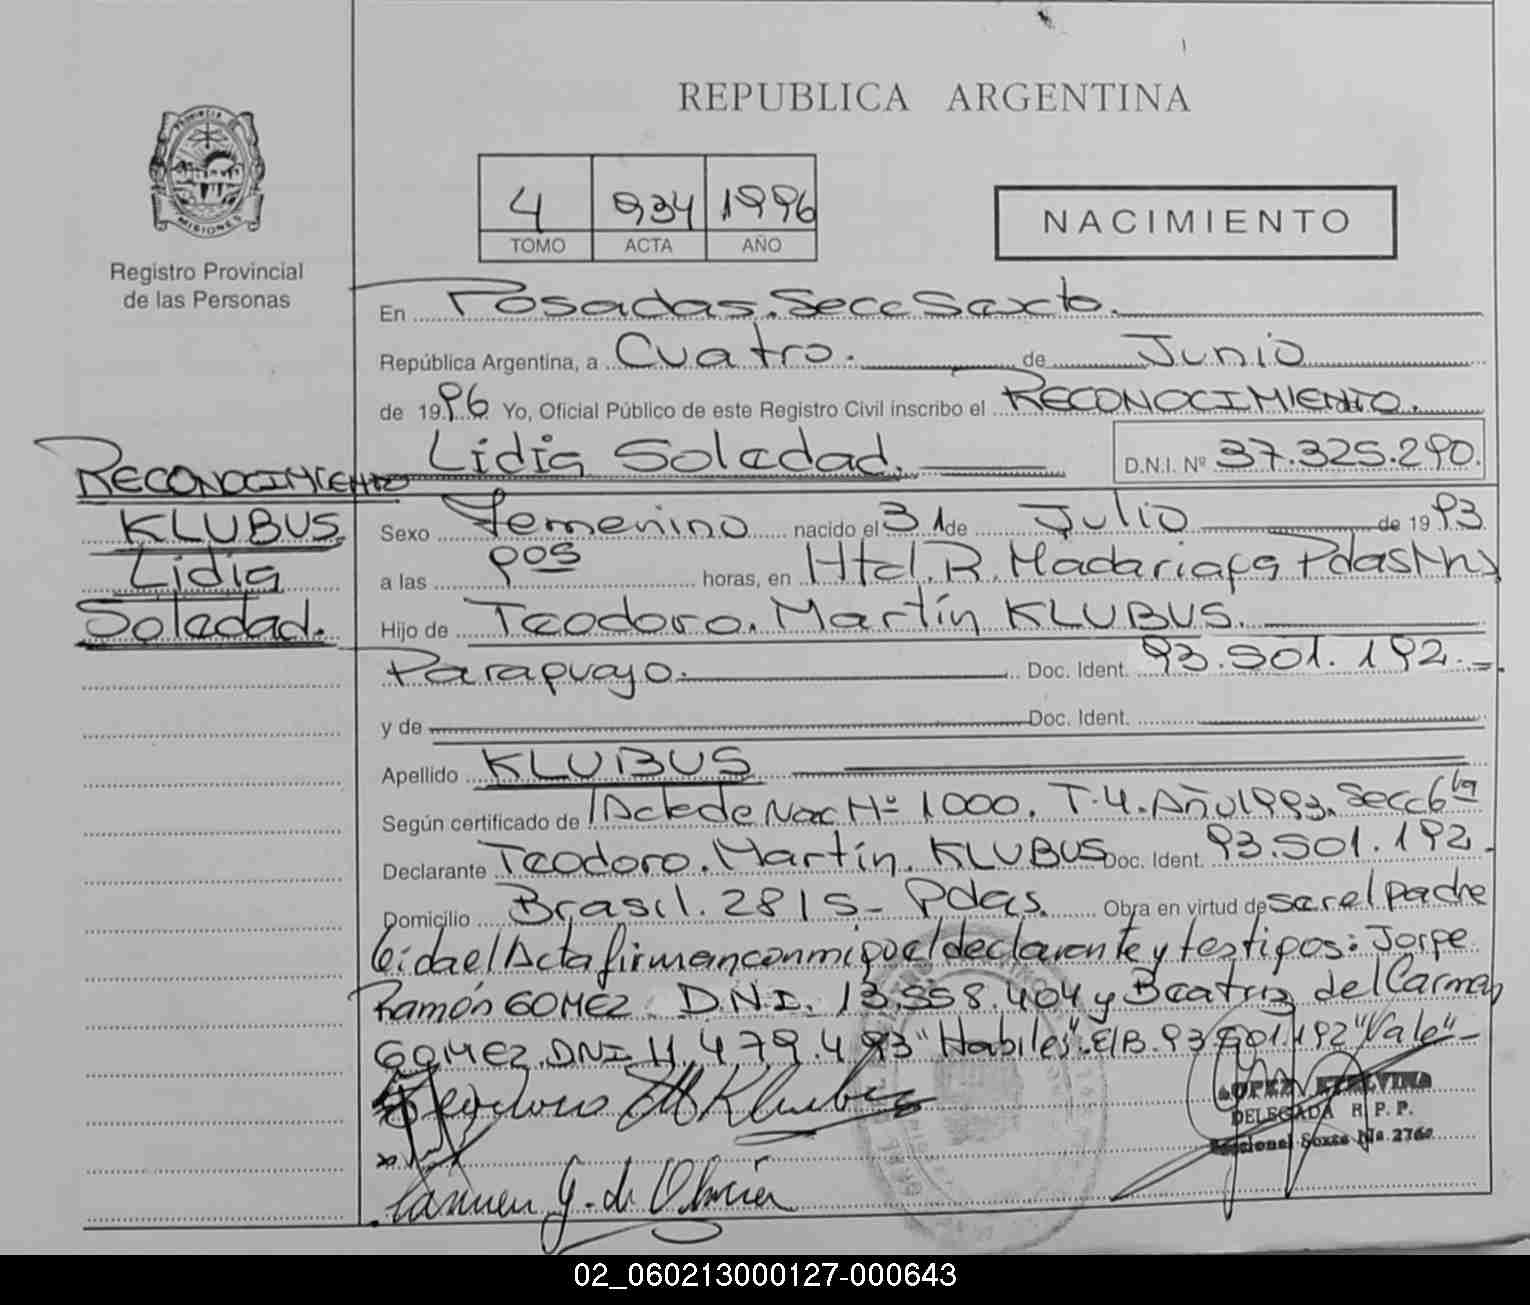 REPUBLICA ARGENTINA
PROVINCIA DE
MISIONES
Registro Provincial
de las Personas
4 934 1996
TOMO ACTA AÑO
NACIMIENTO
En Posadas. Secc Sexta.
República Argentina, a Cuatro. de Junio
de 1996 Yo, Oficial Público de este Registro Civil inscribo el RECONOCIMIENTO.
Lidia Soledad. D.N.I. Nº 37.325.290.
RECONOCIMIENTO
KLUBUS
Lidia
Soledad.
Sexo Femenino nacido el 31 de Julio de 1993
a las horas, en Htal. R. Madariaga Pdas Mns
Hijo de Teodoro. Martín KLUBUS.
Paraguayo. Doc. Ident. 93.901.192.
y de Doc. Ident.
Apellido KLUBUS
Según certificado de Acta de Nac Nº 1000. T.4. Año 1993. Secc 6ta
Declarante Teodoro. Martín. KLUBUS Doc. Ident. 93.901.192.
Domicilio Brasil. 2815- Pdas. Obra en virtud de ser el padre
Leida el Acta firman conmigo el declarante y testigos: Jorge
Ramón GOMEZ D.N.I. 13.558.404 y Beatriz del Carmen
GOMEZ. DNI 11.479.493 "Habiles". E/B. 93.901.192 "Vale"-
Teodoro M Klubus
LOPEZ ETELVINA
DELEGADA R. P. P.
Seccional Sexta Nº 2762
Carmen G. de
02_060213000127-000643